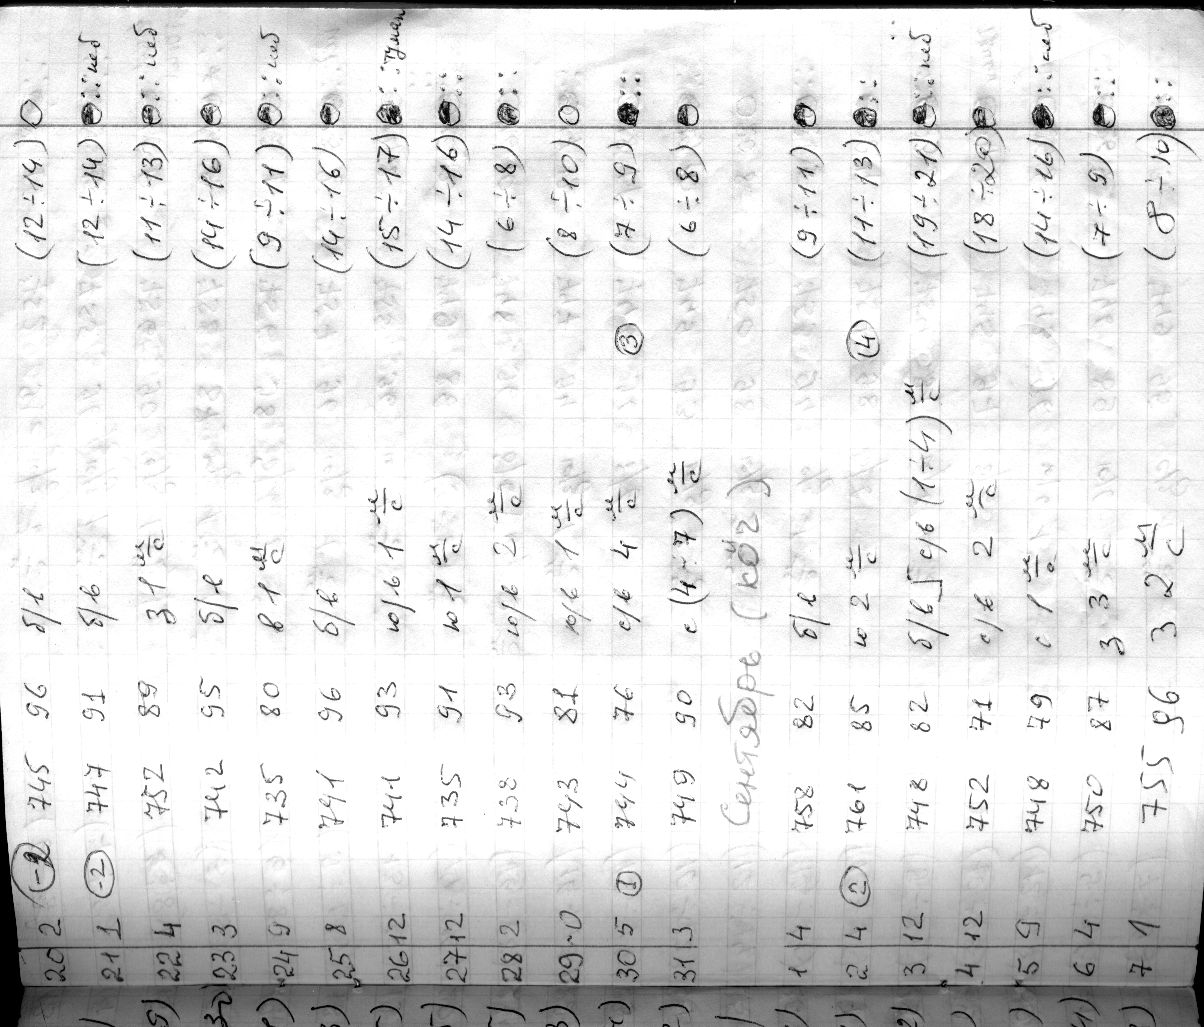 20 2 (-2) 745 96 б/в (12÷14)
21 1 (-2) 747 91 б/в (12÷14) неб
22 4 752 89 З 1 м/с (11÷13) неб
23 3 742 95 б/в (14÷16)
24 9 735 80 в 1 м/с (9÷11) неб
25 8 741 96 б/в (14÷16)
26 12 741 93 ю/в 1 м/с (15÷17) туман
27 12 735 91 ю 1 м/с (14÷16)
28 2 738 93 ю/в 2 м/с (6÷8)
29 ~0 743 81 ю/в 1 м/с (8÷10)
30 5 (1) 744 76 с/в 4 м/с (3) (7÷9)
31 3 749 90 с (4÷7) м/с (6÷8)
Сентябрь (кой 2)
1 4 758 82 б/в (9÷11)
2 4 (2) 761 85 ю 2 м/с (4) (11÷13)
3 12 748 82 б/в с/в (1÷4) м/с (19÷21) неб
4 12 752 71 с/в 2 м/с (18÷20)
5 9 748 79 с 1 м/с (14÷16) неб
6 4 750 87 З 3 м/с (7÷9)
7 1 755 96 З 2 м/с (8÷10)